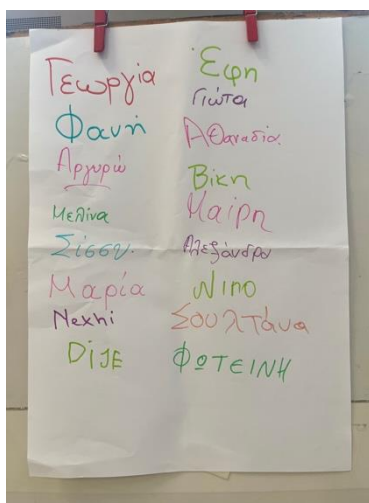 Γεωργία
Φανή
Αργυρώ
Μελίνα
Σίσσυ.
Μαρία
Nexhi
DijE
Έφη
Γιώτα
Αθανασία.
Βίκη
Μαίρη
Αλεξάνδρα
Νιπο
Σουλτάνα
ΦΩΤΕΙΝΗ